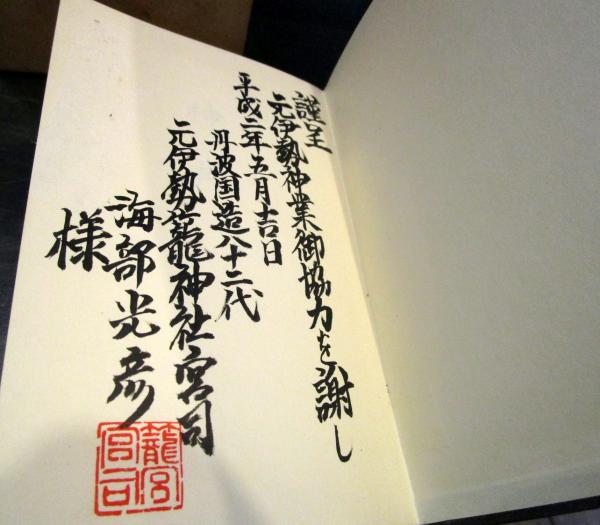 謹呈
元伊勢神業御協力を謝し
平成二年五月吉日
丹波国造八十二代
元伊勢籠神社宮司
海部光彦
様
籠宮
宮司